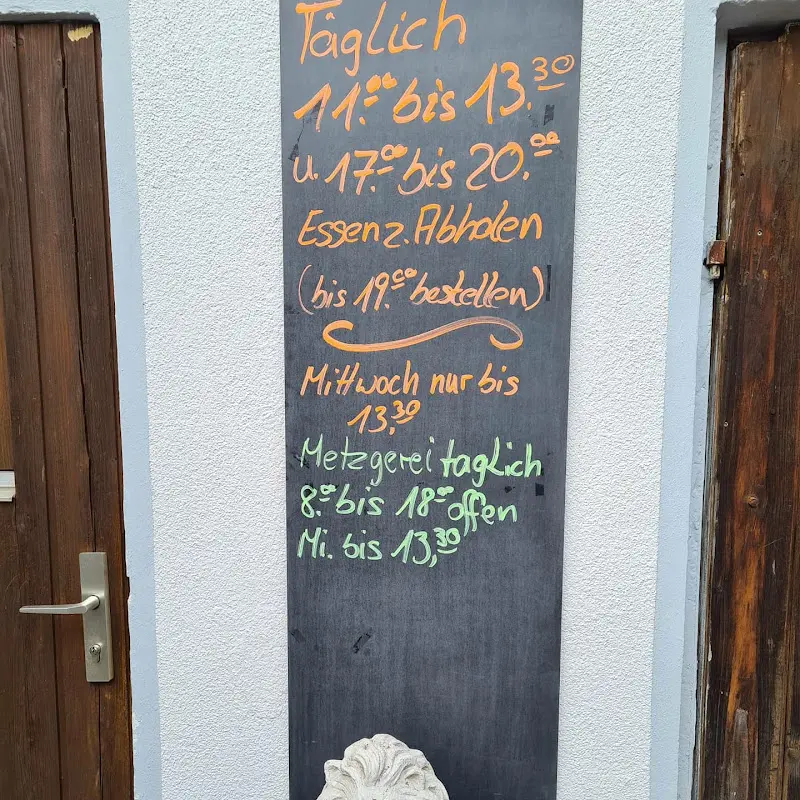 Täglich
11.00 bis 13.30
u. 17.00 bis 20.00
Essen z. Abholen
(bis 19.00 bestellen)
Mittwoch nur bis
13,30
Metzgerei täglich
8.00 bis 18.00 offen
Mi. bis 13,30